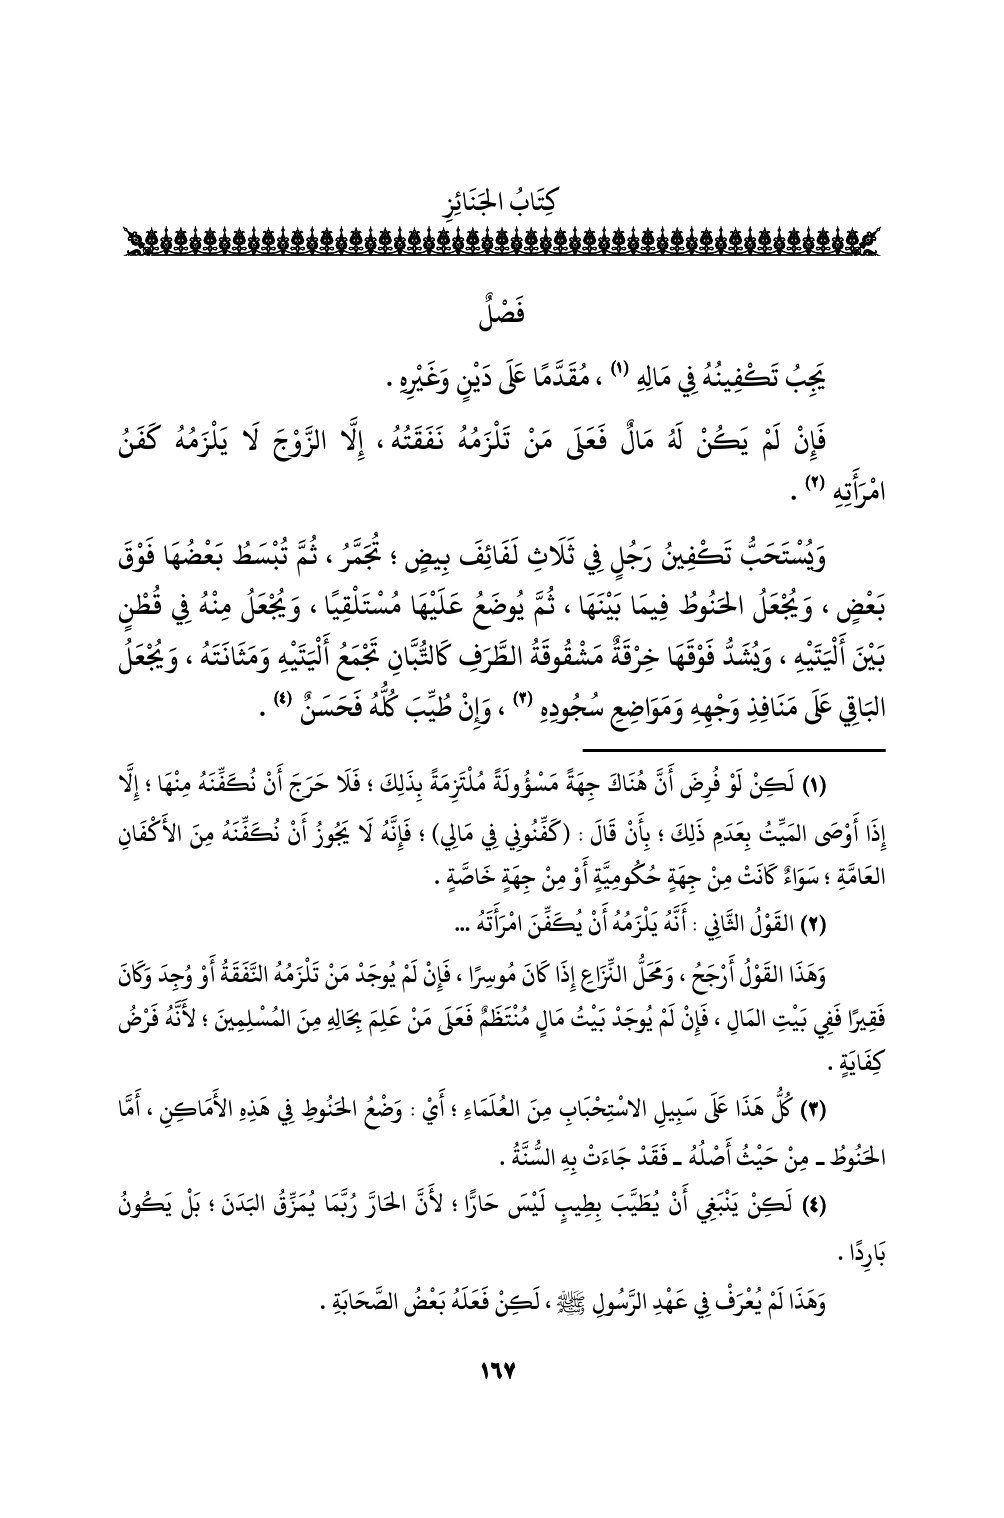 كِتَابُ الجَنَائِزِ
فَصْلٌ
يَجِبُ تَكْفِينُهُ فِي مَالِهِ (١) ، مُقَدَّمًا عَلَى دَيْنٍ وَغَيْرِهِ .
فَإِنْ لَمْ يَكُنْ لَهُ مَالٌ فَعَلَى مَنْ تَلْزَمُهُ نَفَقَتُهُ ، إِلَّا الزَّوْجَ لَا يَلْزَمُهُ كَفَنُ
امْرَأَتِهِ (٢) .
وَيُسْتَحَبُّ تَكْفِينُ رَجُلٍ فِي ثَلَاثِ لَفَائِفَ بِيضٍ ؛ تُجَمَّرُ ، ثُمَّ تُبْسَطُ بَعْضُهَا فَوْقَ
بَعْضٍ ، وَيُجْعَلُ الحَنُوطُ فِيمَا بَيْنَهَا ، ثُمَّ يُوضَعُ عَلَيْهَا مُسْتَلْقِيًا ، وَيُجْعَلُ مِنْهُ فِي قُطْنٍ
بَيْنَ أَلْيَتَيْهِ ، وَيُشَدُّ فَوْقَهَا خِرْقَةٌ مَشْقُوقَةُ الطَّرَفِ كَالتُّبَّانِ تَجْمَعُ أَلْيَتَيْهِ وَمَثَانَتَهُ ، وَيُجْعَلُ
البَاقِي عَلَى مَنَافِذِ وَجْهِهِ وَمَوَاضِعِ سُجُودِهِ (٣) ، وَإِنْ طُيِّبَ كُلُّهُ فَحَسَنٌ (٤) .
(١) لَكِنْ لَوْ فُرِضَ أَنَّ هُنَاكَ جِهَةً مَسْؤُولَةً مُلْتَزِمَةً بِذَلِكَ ؛ فَلَا حَرَجَ أَنْ نُكَفِّنَهُ مِنْهَا ؛ إِلَّا
إِذَا أَوْصَى المَيِّتُ بِعَدَمِ ذَلِكَ ؛ بِأَنْ قَالَ : (كَفِّنُونِي فِي مَالِي) ؛ فَإِنَّهُ لَا يَجُوزُ أَنْ نُكَفِّنَهُ مِنَ الأَكْفَانِ
العَامَّةِ ؛ سَوَاءٌ كَانَتْ مِنْ جِهَةٍ حُكُومِيَّةٍ أَوْ مِنْ جِهَةٍ خَاصَّةٍ .
(٢) القَوْلُ الثَّانِي : أَنَّهُ يَلْزَمُهُ أَنْ يُكَفِّنَ امْرَأَتَهُ ...
وَهَذَا القَوْلُ أَرْجَحُ ، وَمَحَلُّ النِّزَاعِ إِذَا كَانَ مُوسِرًا ، فَإِنْ لَمْ يُوجَدْ مَنْ تَلْزَمُهُ النَّفَقَةُ أَوْ وُجِدَ وَكَانَ
فَقِيرًا فَفِي بَيْتِ المَالِ ، فَإِنْ لَمْ يُوجَدْ بَيْتُ مَالٍ مُنْتَظَمٌ فَعَلَى مَنْ عَلِمَ بِحَالِهِ مِنَ المُسْلِمِينَ ؛ لأَنَّهُ فَرْضُ
كِفَايَةٍ .
(٣) كُلُّ هَذَا عَلَى سَبِيلِ الاسْتِحْبَابِ مِنَ العُلَمَاءِ ؛ أَيْ : وَضْعُ الحَنُوطِ فِي هَذِهِ الأَمَاكِنِ ، أَمَّا
الحَنُوطُ ـ مِنْ حَيْثُ أَصْلُهُ ـ فَقَدْ جَاءَتْ بِهِ السُّنَّةُ .
(٤) لَكِنْ يَنْبَغِي أَنْ يُطَيَّبَ بِطِيبٍ لَيْسَ حَارًّا ؛ لأَنَّ الحَارَّ رُبَّمَا يُمَزِّقُ البَدَنَ ؛ بَلْ يَكُونُ
بَارِدًا .
وَهَذَا لَمْ يُعْرَفْ فِي عَهْدِ الرَّسُولِ ﷺ ، لَكِنْ فَعَلَهُ بَعْضُ الصَّحَابَةِ .
١٦٧